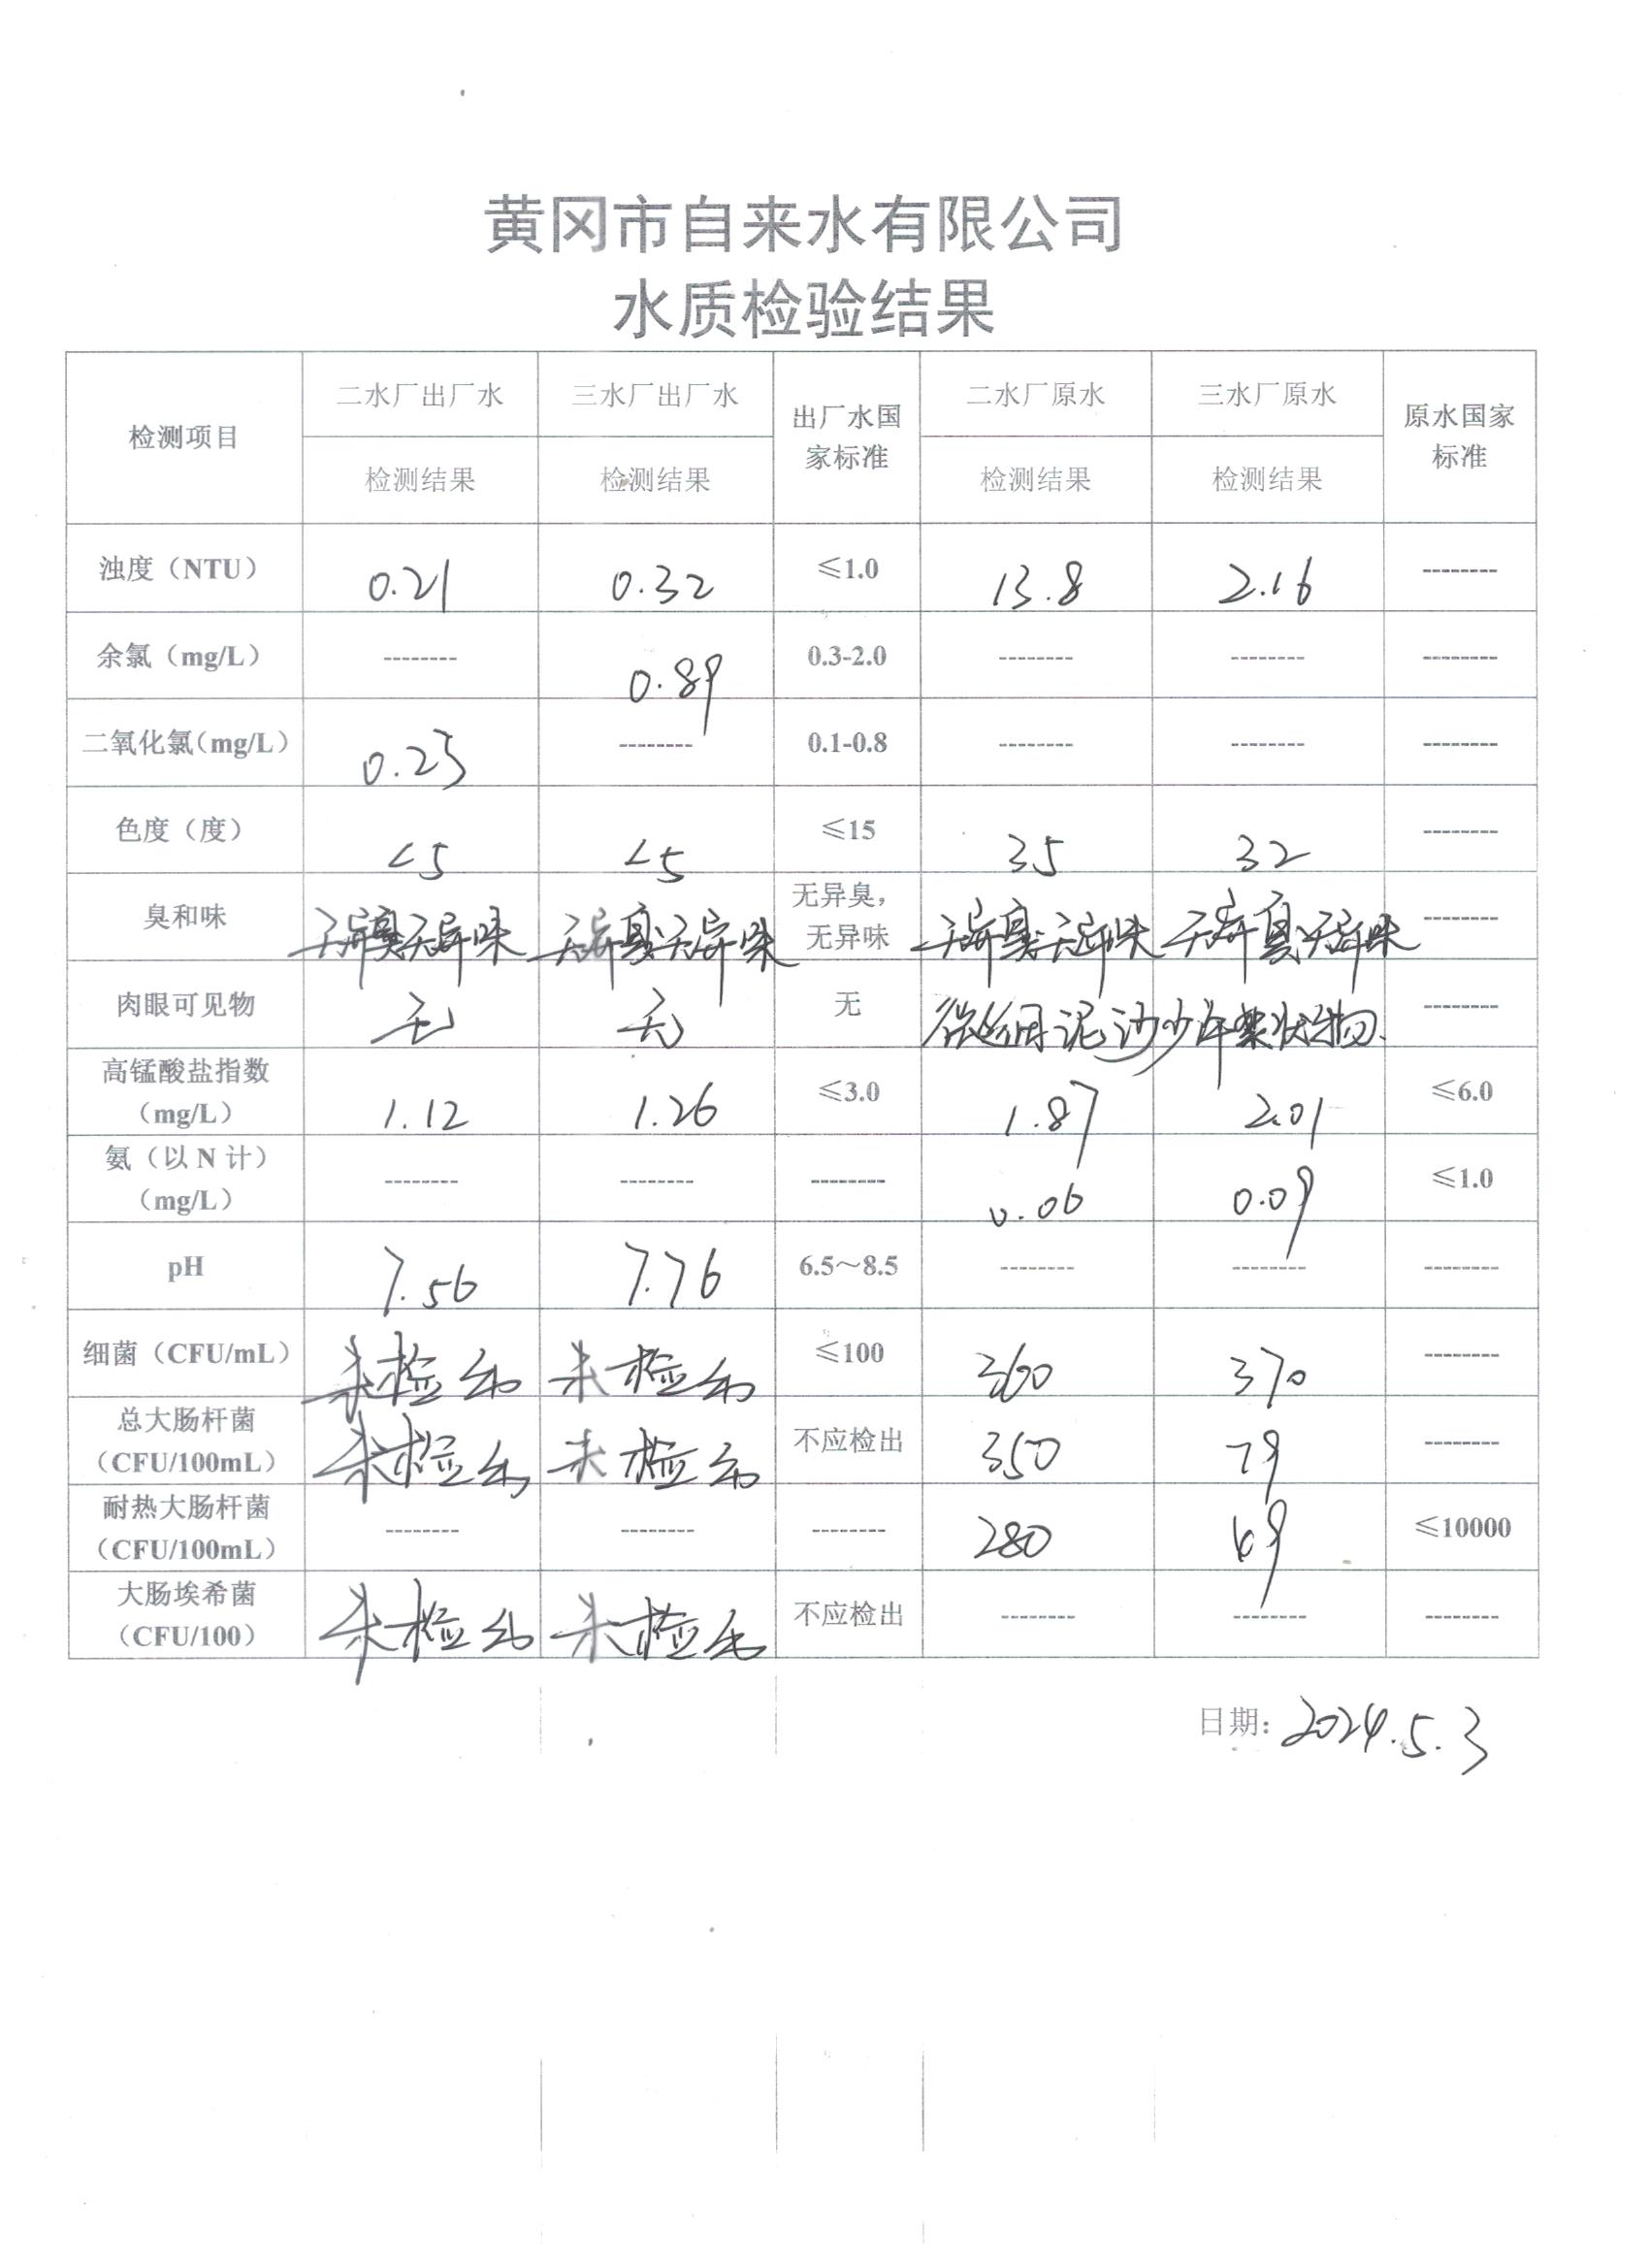 黄冈市自来水有限公司
水质检验结果
检测项目 二水厂出厂水 三水厂出厂水 出厂水国家标准 二水厂原水 三水厂原水 原水国家标准
检测结果 检测结果 检测结果 检测结果
浊度（NTU） 0.21 0.32 ≤1.0 13.8 2.16 --------
余氯（mg/L） -------- 0.89 0.3-2.0 -------- -------- --------
二氧化氯（mg/L） 0.23 -------- 0.1-0.8 -------- -------- --------
色度（度） <5 <5 ≤15 35 32 --------
臭和味 无异臭无异味 无异臭无异味 无异臭，无异味 无异臭无异味 无异臭无异味 --------
肉眼可见物 无 无 无 微细泥沙 少许絮状物 --------
高锰酸盐指数（mg/L） 1.12 1.26 ≤3.0 1.87 2.01 ≤6.0
氨（以 N 计）（mg/L） -------- -------- -------- 0.06 0.09 ≤1.0
pH 7.56 7.76 6.5～8.5 -------- -------- --------
细菌（CFU/mL） 未检出 未检出 ≤100 360 370 --------
总大肠杆菌（CFU/100mL） 未检出 未检出 不应检出 350 79 --------
耐热大肠杆菌（CFU/100mL） -------- -------- -------- 280 69 ≤10000
大肠埃希菌（CFU/100） 未检出 未检出 不应检出 -------- -------- --------
日期: 2024.5.3